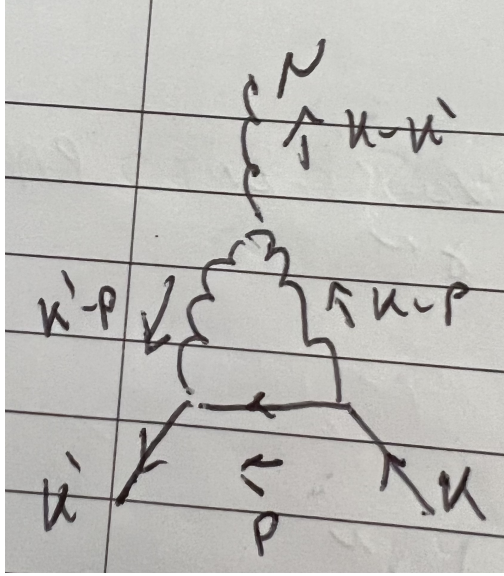 μ
k-k'
k'-p
k-p
k'
k
p